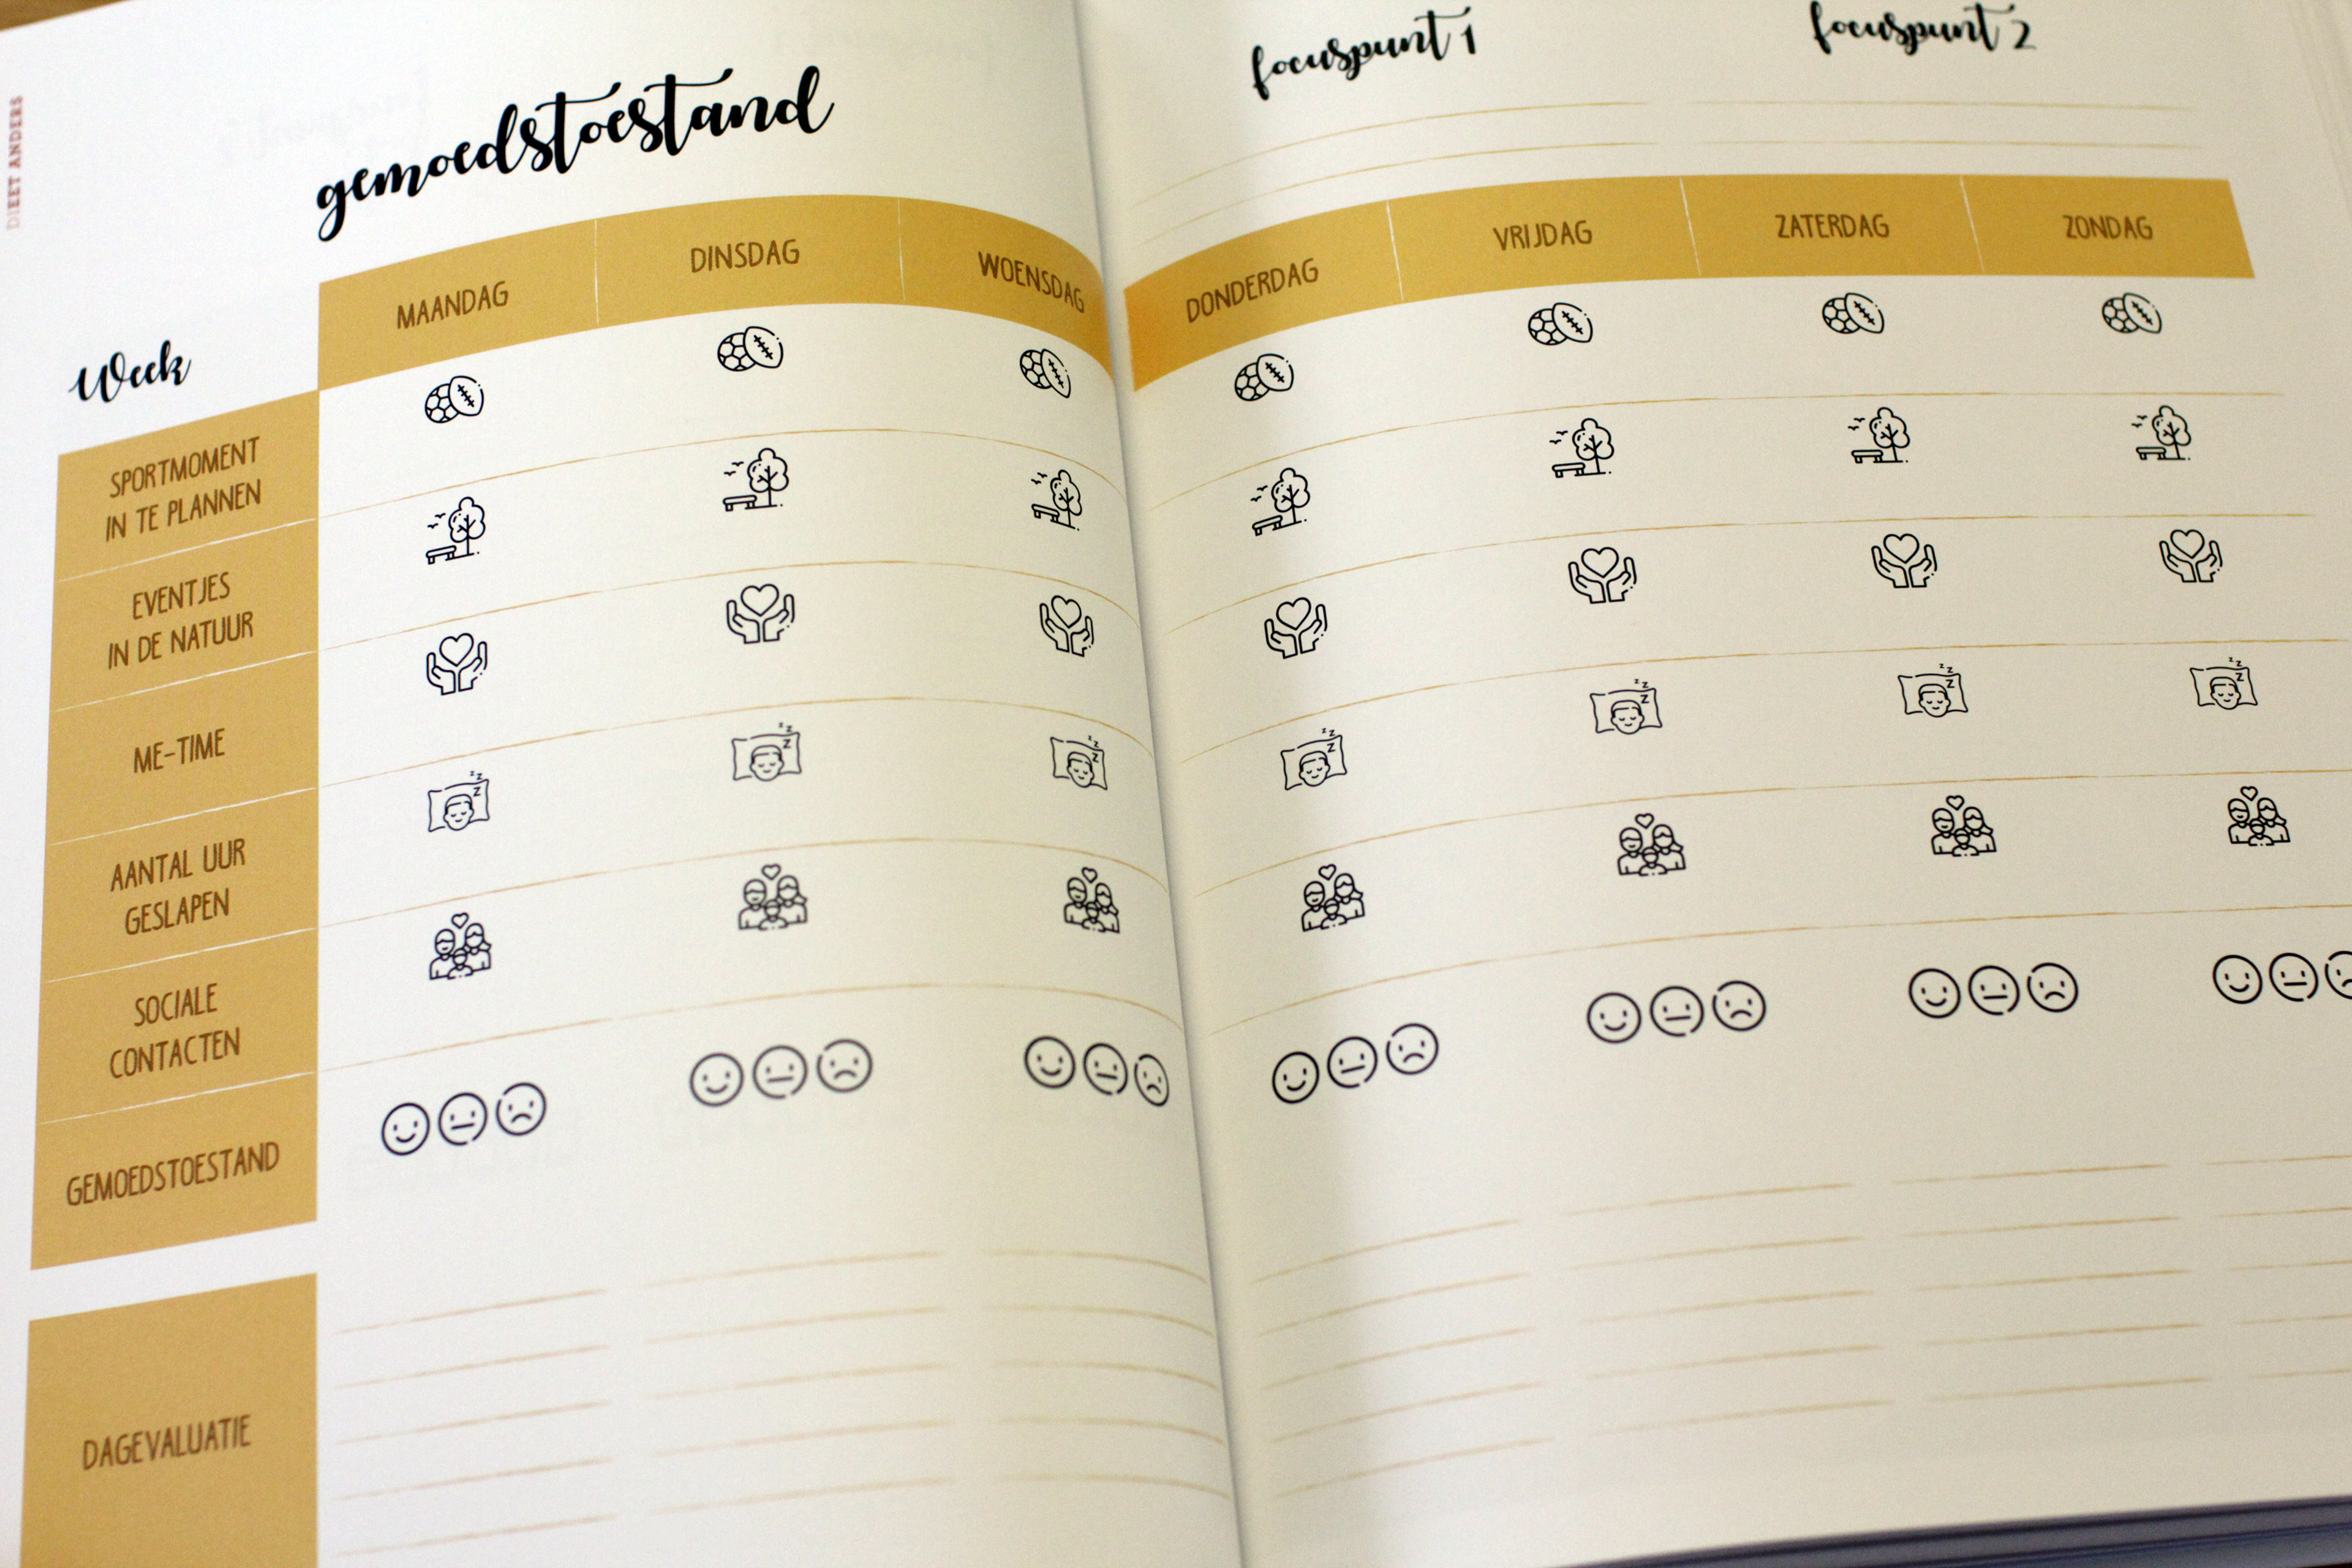 DIEET ANDERS
gemoedstoestand
focuspunt 1
focuspunt 2
Week
MAANDAG
DINSDAG
WOENSDAG
DONDERDAG
VRIJDAG
ZATERDAG
ZONDAG
SPORTMOMENT
IN TE PLANNEN
EVENTJES
IN DE NATUUR
ME-TIME
AANTAL UUR
GESLAPEN
SOCIALE
CONTACTEN
GEMOEDSTOESTAND
DAGEVALUATIE